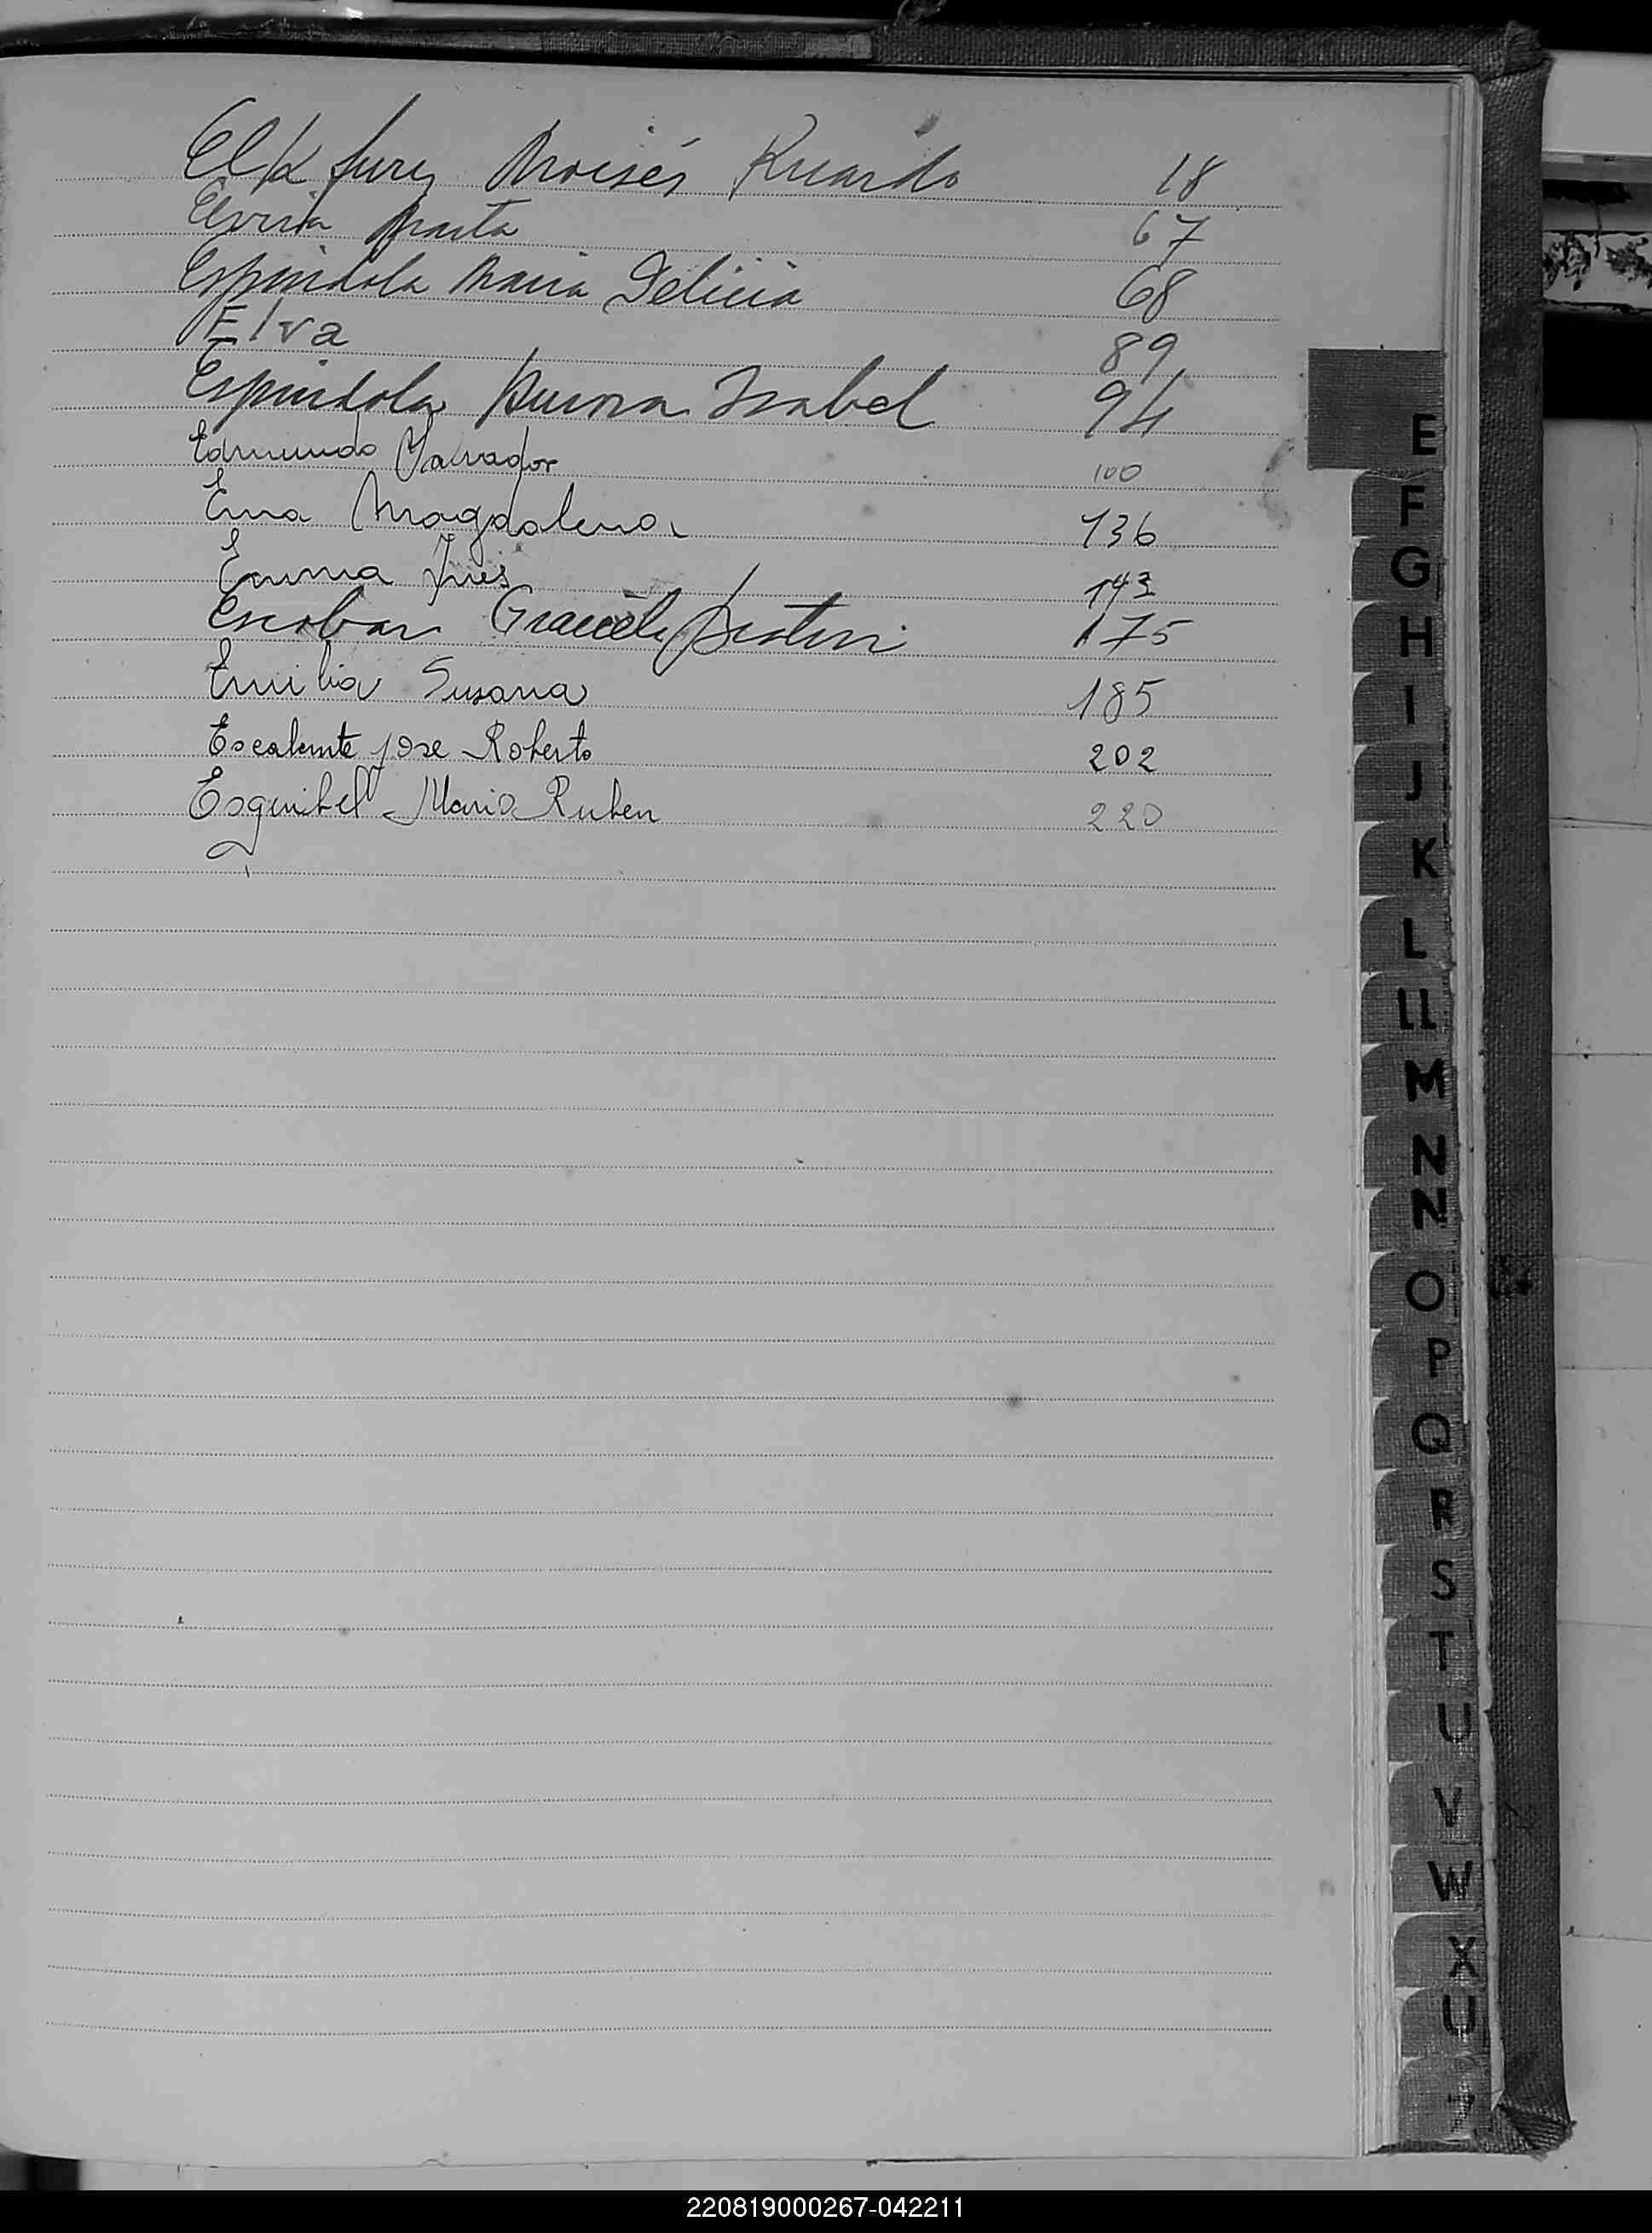 Moisés Ricardo 18
Elvira Marta 67
Espíndola Maria Delicia 68
Elva 89
Espíndola Isabel 94
Edmundo Salvador 100
Ema Magdalena 136
Emma Ines 143
Escobar Graciela 175
Emilia Susana 185
Escalante jose Roberto 202
Esquibel Mario Ruben 220
E
F
G
H
I
J
K
L
LL
M
N
N
O
P
Q
R
S
T
U
V
W
X
U
Z
220819000267-042211